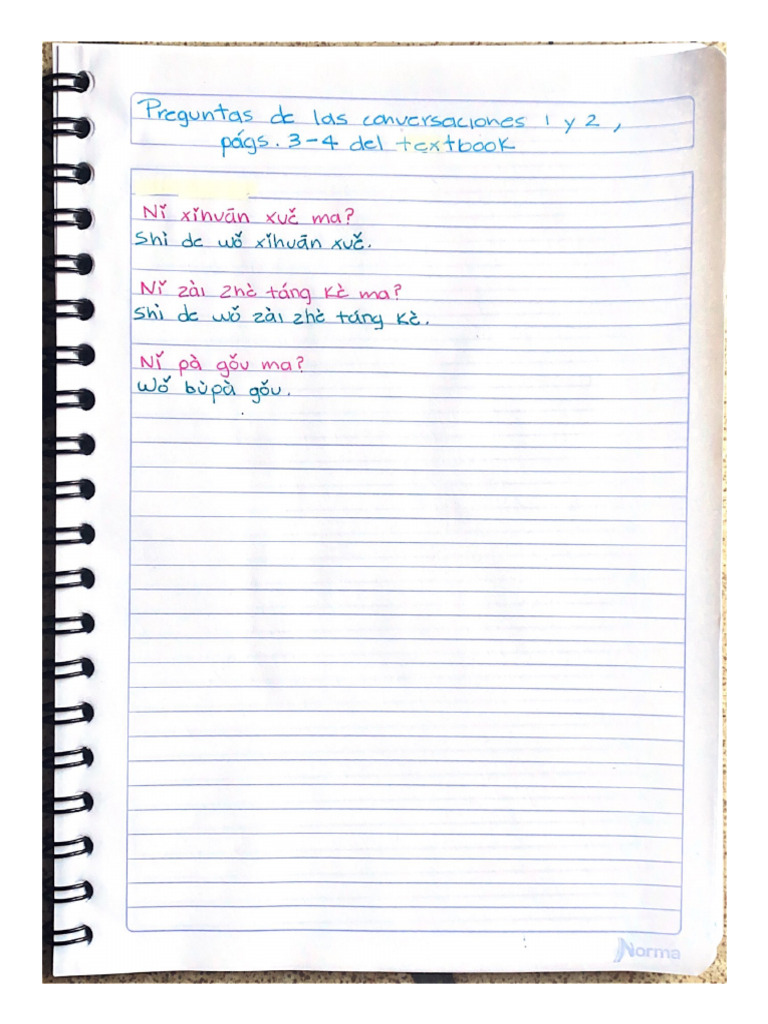 Preguntas de las conversaciones 1 y 2,
págs. 3-4 del textbook
Nǐ xǐhuān xuě ma?
Shì de wǒ xǐhuān xuě.
Nǐ zài zhè táng kè ma?
Shì de wǒ zài zhè táng kè.
Nǐ pà gǒu ma?
Wǒ bùpà gǒu.
Norma